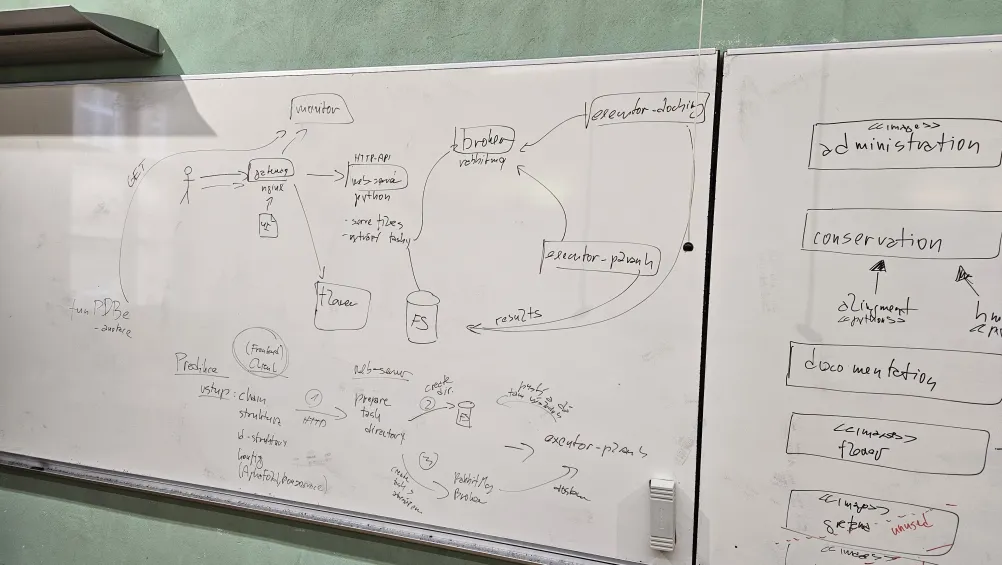 monitor
GET
gateway
nginx
HTTP-API
web-server
python
- serve files
- vytvoří tasky
broker
rabbitmq
executor-docking
executor-p2rank
flower
FS
results
funPDBe
Predikce
vstup: chain
struktura
id-struktury
konfig
(Frontend)
Client
1
HTTP
web-server
prepare
task
directory
2
create
dir.
FS
3
RabbitMQ
Broker
executor-p2rank
<<image>>
administration
conservation
alignment
<<python>>
documentation
<<image>>
flower
<<image>>
unused
<<image>>